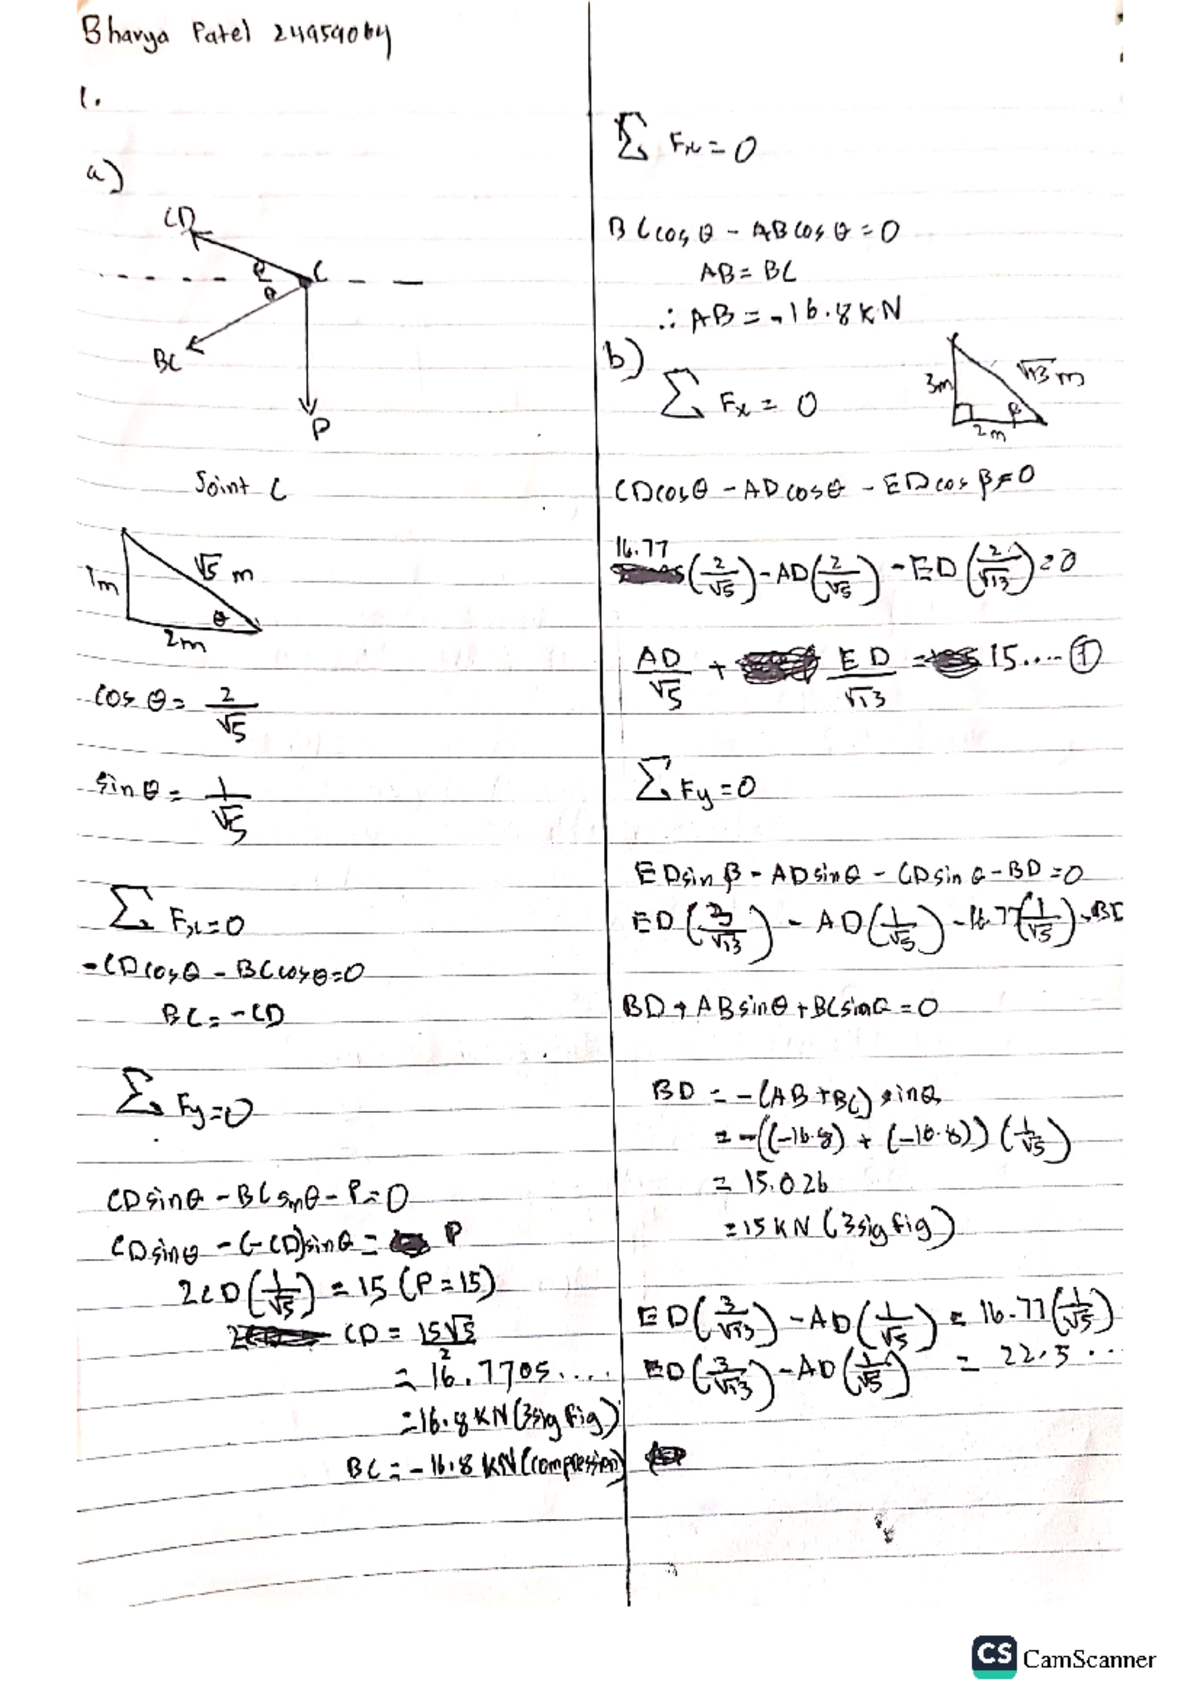 Bhavya Patel 24959064
1.
a)
CD
θ
C
θ
BC
P
Joint C
1m
√5 m
θ
2m
cos θ = 2/√5
sin θ = 1/√5
∑ Fx = 0
-CD cosθ - BC cosθ = 0
BC = -CD
∑ Fy = 0
CD sinθ - BC sinθ - P = 0
CD sinθ - (-CD) sinθ = P
2CD (1/√5) = 15 (P = 15)
CD = 15√5/2
= 16.7705....
= 16.8 KN (3 sig fig)
BC = -16.8 KN (compression)
∑ Fx = 0
BC cos θ - AB cos θ = 0
AB = BC
∴ AB = -16.8 KN
b)
∑ Fx = 0
3m
√13 m
β
2m
CD cosθ - AD cosθ - ED cos β = 0
16.77 (2/√5) - AD (2/√5) - ED (2/√13) = 0
AD/√5 + ED/√13 = 15.... ①
∑ Fy = 0
ED sin β - AD sin θ - CD sin θ - BD = 0
ED (3/√13) - AD (1/√5) - 16.77 (1/√5) - BD
BD + AB sinθ + BC sinθ = 0
BD = -(AB + BC) sinθ
= -((-16.8) + (-16.8)) (1/√5)
= 15.026
= 15 KN (3 sig fig)
ED (3/√13) - AD (1/√5) = 16.77 (1/√5)
ED (3/√13) - AD (1/√5) = 22.5 ...
CS CamScanner